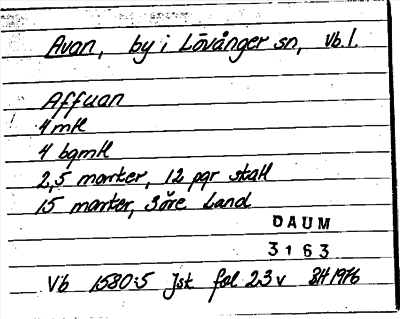 Avan, by i Lövånger sn, Vb.l.
Affuan
4 mtl
4 bgmtl
2,5 marker, 12 pgr skatt
15 marker, 3 öre Land
DAUM
3163
Vb 1580:5 Jsk fol 23 v BH 1976